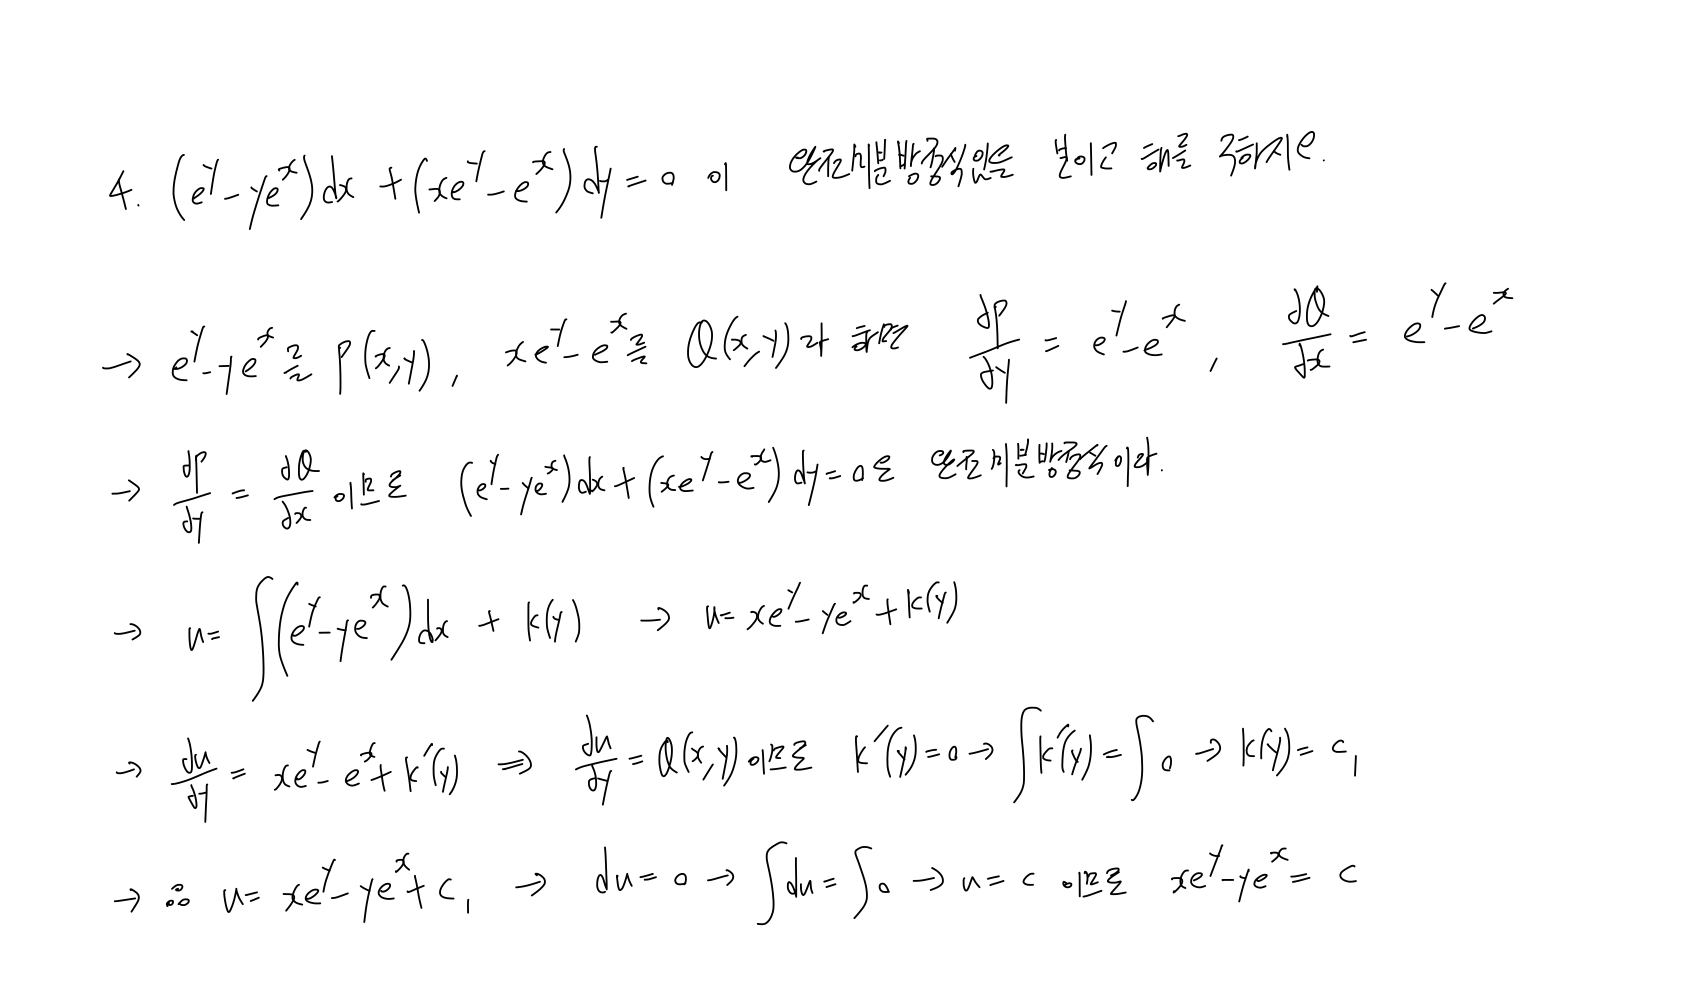 4. (e^y - ye^x)dx + (xe^y - e^x)dy = 0 이 완전미분방정식임을 보이고 해를 구하시오.
→ e^y - ye^x를 P(x,y), xe^y - e^x를 Q(x,y)라 하면 ∂P/∂y = e^y - e^x, ∂Q/∂x = e^y - e^x
→ ∂P/∂y = ∂Q/∂x 이므로 (e^y - ye^x)dx + (xe^y - e^x)dy = 0은 완전미분방정식이다.
→ u = ∫(e^y - ye^x)dx + k(y) → u = xe^y - ye^x + k(y)
→ ∂u/∂y = xe^y - e^x + k′(y) ⇒ ∂u/∂y = Q(x,y)이므로 k′(y) = 0 → ∫k′(y) = ∫0 → k(y) = c₁
→ ∴ u = xe^y - ye^x + c₁ → du = 0 → ∫du = ∫0 → u = c 이므로 xe^y - ye^x = c